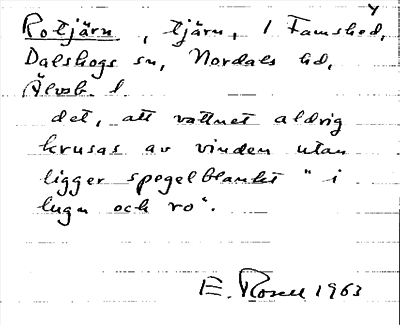 Rotjärn, tjärn, i Famshed,
Dalskogs sn, Nordals hd,
Älvsb. l
det, att vattnet aldrig
krusas av vinden utan
ligger spegelblankt "i
lugn och ro".
E. Rosell 1963